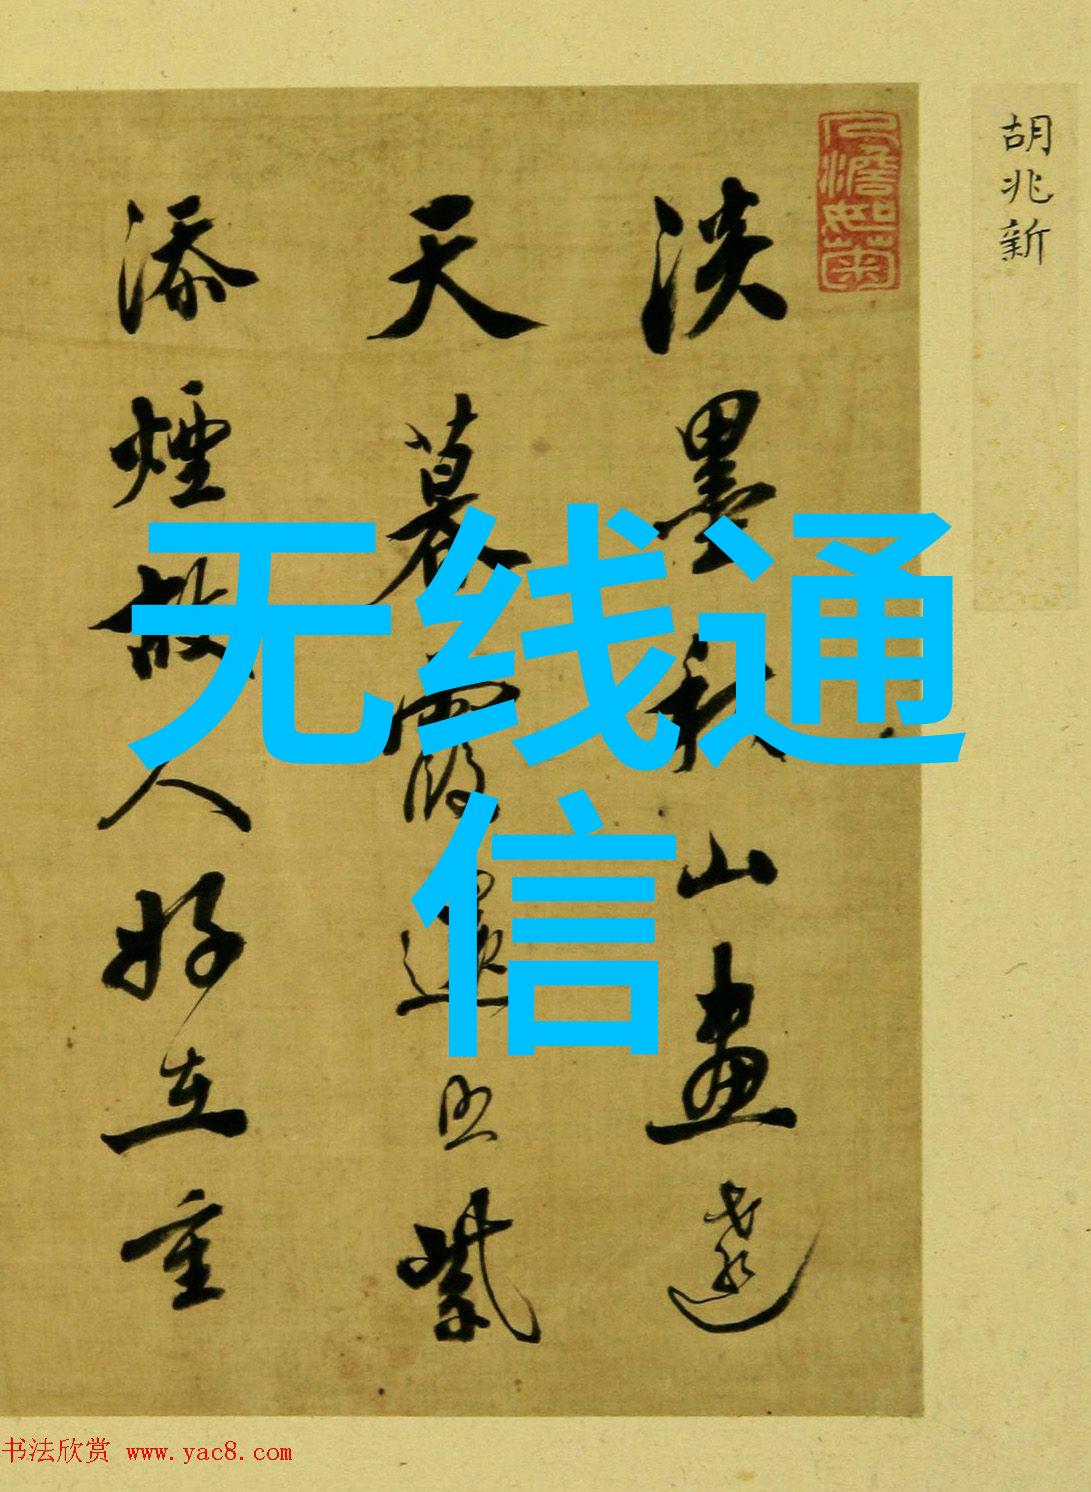 胡兆新
人澹如菊
淡墨秋山畫遠
天暮霞還照紫
添煙故人好在重
无线通
信
书法欣赏 www.yac8.com